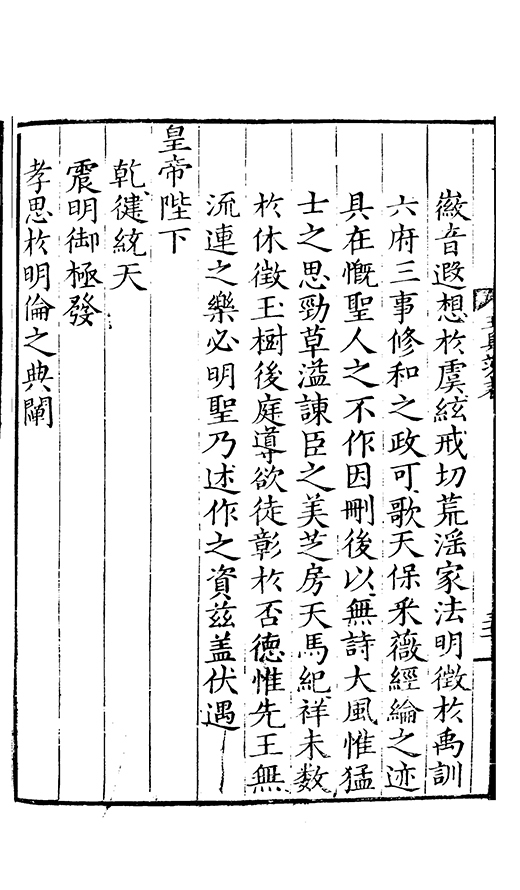 徽音遐想於虞絃戒切荒滛家法明徵於禹訓
六府三事修和之政可歌天保采薇經綸之迹
具在慨聖人之不作因刪後以無詩大風惟猛
士之思勁草溢諌臣之美芝房天馬紀祥未数
於休徵玉樹後庭導欲徒彰於否德惟先王無
流連之樂必明聖乃述作之資兹盖伏遇
皇帝陛下
乾健統天
震明御極發
孝思於明倫之典闡